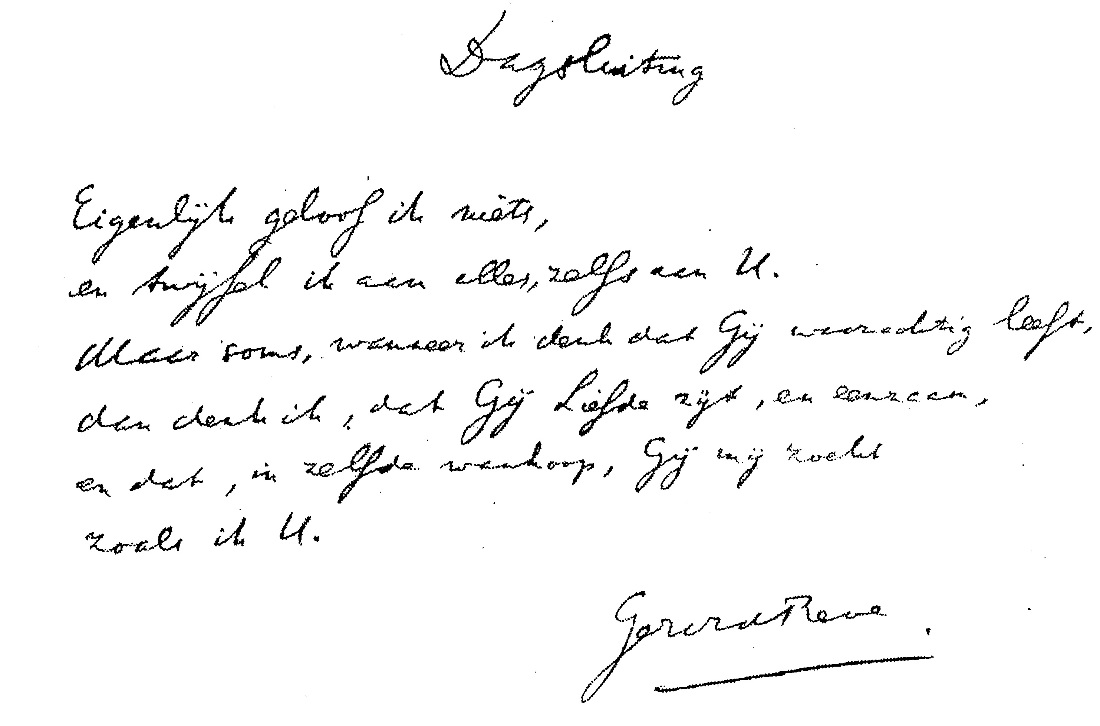 Dagsluiting
Eigenlijk geloof ik niets,
en twijfel ik aan alles, zelfs aan U.
Maar soms, wanneer ik denk dat Gij waarachtig leeft,
dan denk ik, dat Gij Liefde zijt, en eenzaam,
en dat, in zelfde wanhoop, Gij mij zoekt
zoals ik U.
Gerard Reve.